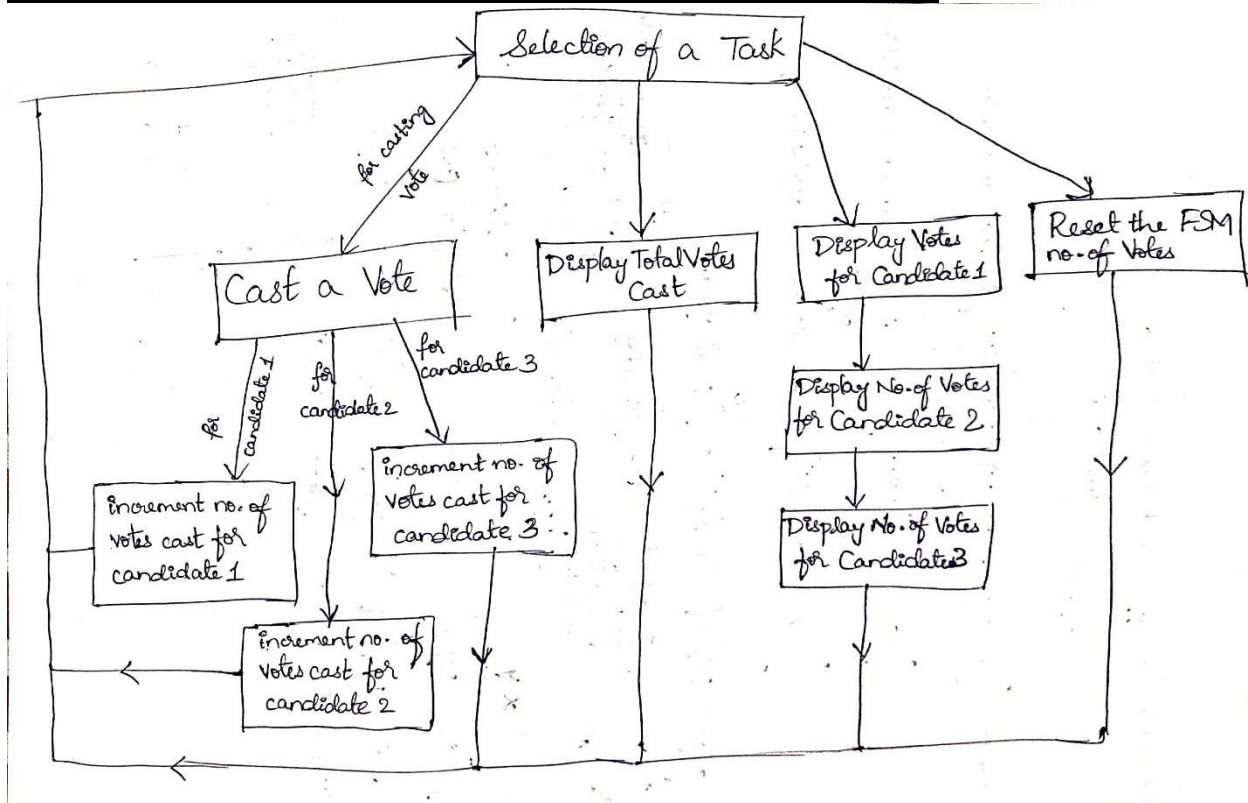 Selection of a Task
for casting
vote
Cast a Vote
Display Total Votes
Cast
Display Votes
for Candidate 1
Reset the FSM
no. of Votes
for
candidate 1
for
candidate 2
for
candidate 3
Display No. of Votes
for Candidate 2
increment no. of
votes cast for
candidate 1
increment no. of
votes cast for
candidate 3
Display No. of Votes
for Candidate 3
increment no. of
votes cast for
candidate 2